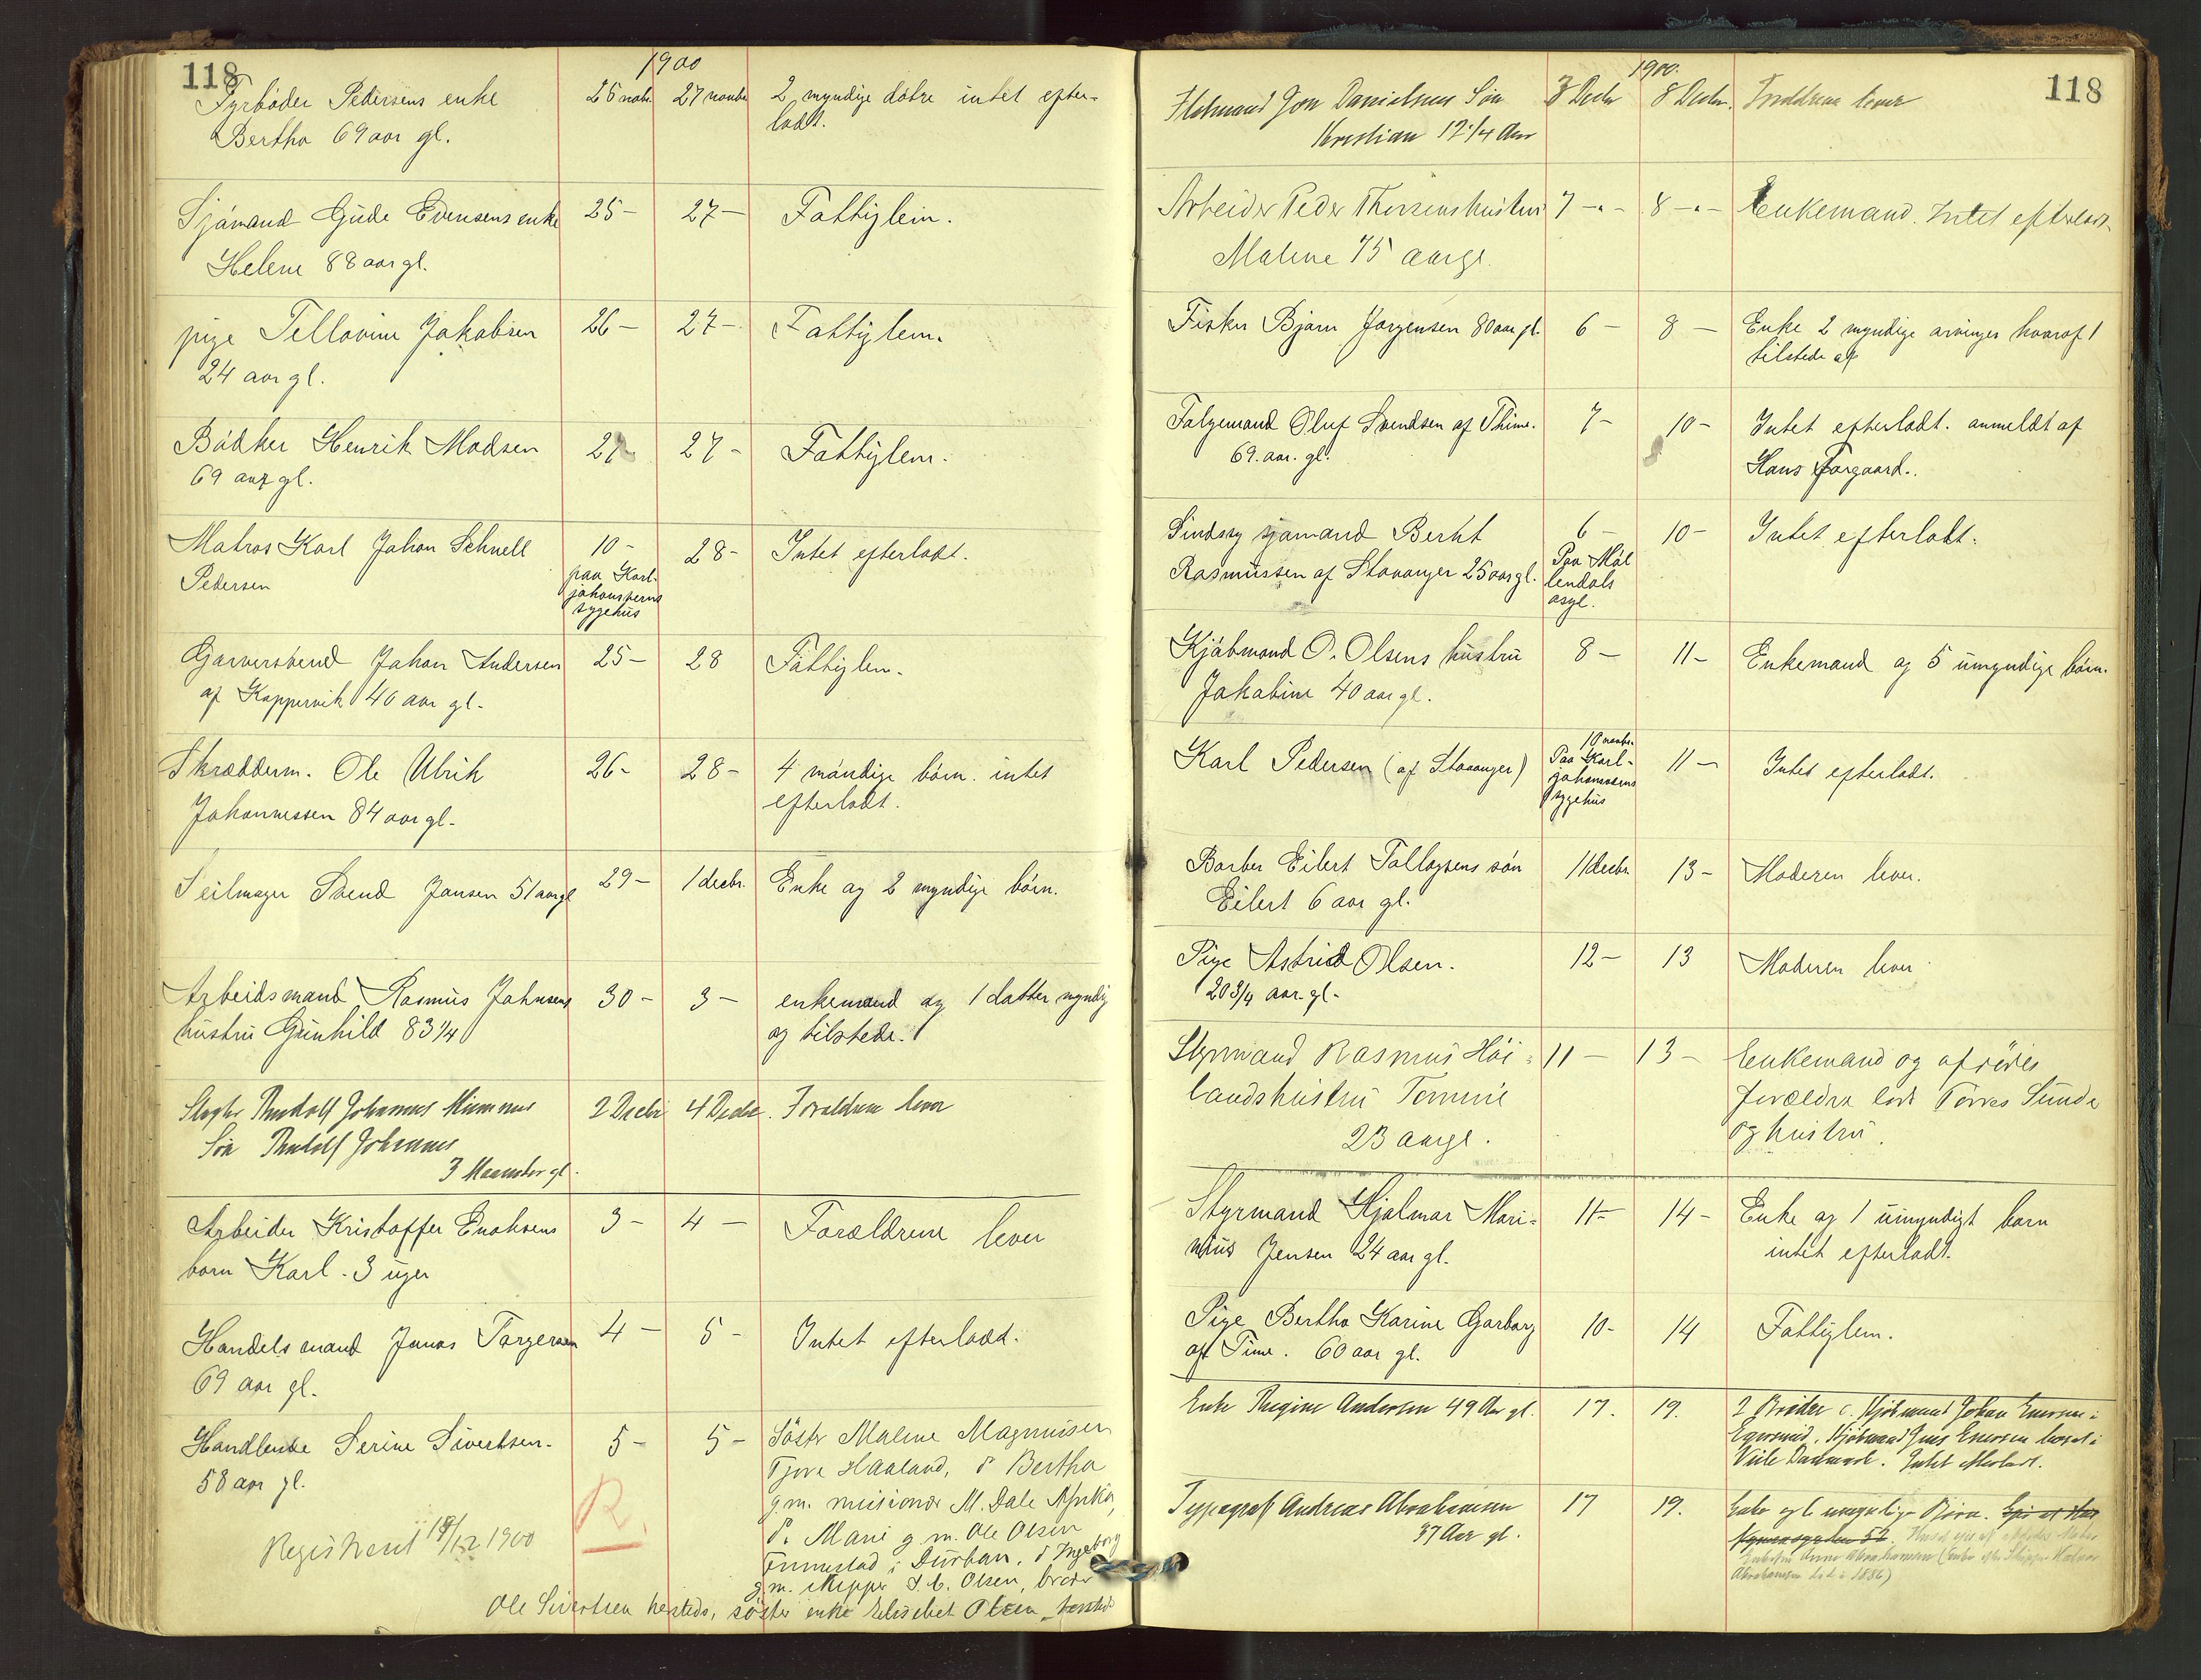 118
1900
Fyrböder Pedersens enke 25 novbr. 27 novbr 2 myndige döbre intet efter-
ladt.
Bertha 69 aar gl.
Sjömand Gude Evensens enke 25 - 27 - Fattiglem.
Helene 88 aar gl.
pige Tellovine Jakobsen 26 - 27 - Fattiglem.
24 aar gl.
Bödker Henrik Madsen 27 27 - Fattiglem.
69 aar gl.
Matros Karl Johan Schnell 10 - 28 - Intet efterladt.
Pedersen paa Karl-
johansverns
sygehus
Garversvend Johan Andersen 25 - 28 Fattiglem.
af Koppervik 40 aar gl.
Skrædderm. Ole Ulrik 26 - 28 - 4 mändige börn. intet
efterladt.
Johannessen 84 aar gl.
Seilmager Svend Jansen 51 aar gl 29 - 1 decbr. Enke og 2 myndige börn.
Arbeidsmand Rasmus Johnsens 30 - 3 - enkemand og 1 datter myndig
hustru Gunhild 83 1/4 og tilstede.
Rudolf Johannes 2 Decbr 4 Decbr. Forældrene lever
Sön Rudolf Johannes
3 Maaneder gl.
Arbeider Kristoffer Enoksens 3 - 4 - Forældrene lever
barn Karl. 3 uger
Handelsmand Jonas Torgersen 4 - 5 - Intet efterladt.
69 aar gl.
Handlende Serine Sivertsen. 5 - 5 - Söster Malene Magnussen
58 aar gl. Tjora Haaland, d Bertha
g.m. missionær M. Dale Afrika,
R.
d. Marie g.m. Ole Olsen
Registreret 19/12 1900
i Durban, d Ingeborg
g.m. skipper S. C. Olsen, broder
Ole Sivertsen hersteds, söster enke Elisabet Olsen herstede
118
1900.
Jon Danielsens Sön 3 Decbr 8 Decbr. Forældrene lever
Kristian 12 1/4 Aar
Arbeider Peder Thorsens hustru 7 -"- 8 -"- Enkemand. Intet efterladt.
Malene 75 aar gl.
Fisker Bjarn Jorgensen 80 aar gl. 6 - 8 - Enke 2 myndige arvinger hvoraf 1
tilstede
Oluf Svendsen af Thime. 7 - 10 - Intet efterladt. anmeldt af
69. aar. gl. Hans
Sindssyg sjömand Berht 6 - 10 - Intet efterladt.
Rasmussen af Stavanger 25 aar gl. Paa Möl
lendals
asyl.
Kjöbmand O. Olsens hustru 8 - 11 - Enkemand og 5 umyndige börn.
Jakobine 40 aar gl.
Karl Pedersen (af Stavanger) 10 novbr. 11 - Intet efterladt.
Paa Karl-
johansverns
sygehus
Barber Eilert Tollagsens sön 11 decbr 13 - Moderen lever.
Eilert 6 aar gl.
Pige Astrid Olsen. 12 - 13 Moderen lever
20 3/4 aar. gl.
Styrmand Rasmus Höi- 11 - 13 - Enkemand og afdödes
lands hustru Tomine forældre Torres Sunde
23 aar gl. og hustru.
Styrmand Hjalmar Mari- 11 - 14 - Enke og 1 umyndigt barn
nius Jensen 24 aar gl. intet efterladt.
Pige Bertha Karine Garborg 10 - 14 Fattiglem.
af Time. 60 aar gl.
Enke Regine Andersen 49 Aar gl. 17. 19. 2 Brödre Kjöbmand Johan i
Egersund, Kjöbmand Jens bosat i
Veile Danmark. Intet efterladt.
Typograf Andreas Abrahamsen 17 19. Enke og 6 umyndige Börn.
37 Aar gl.
Abrahamsen